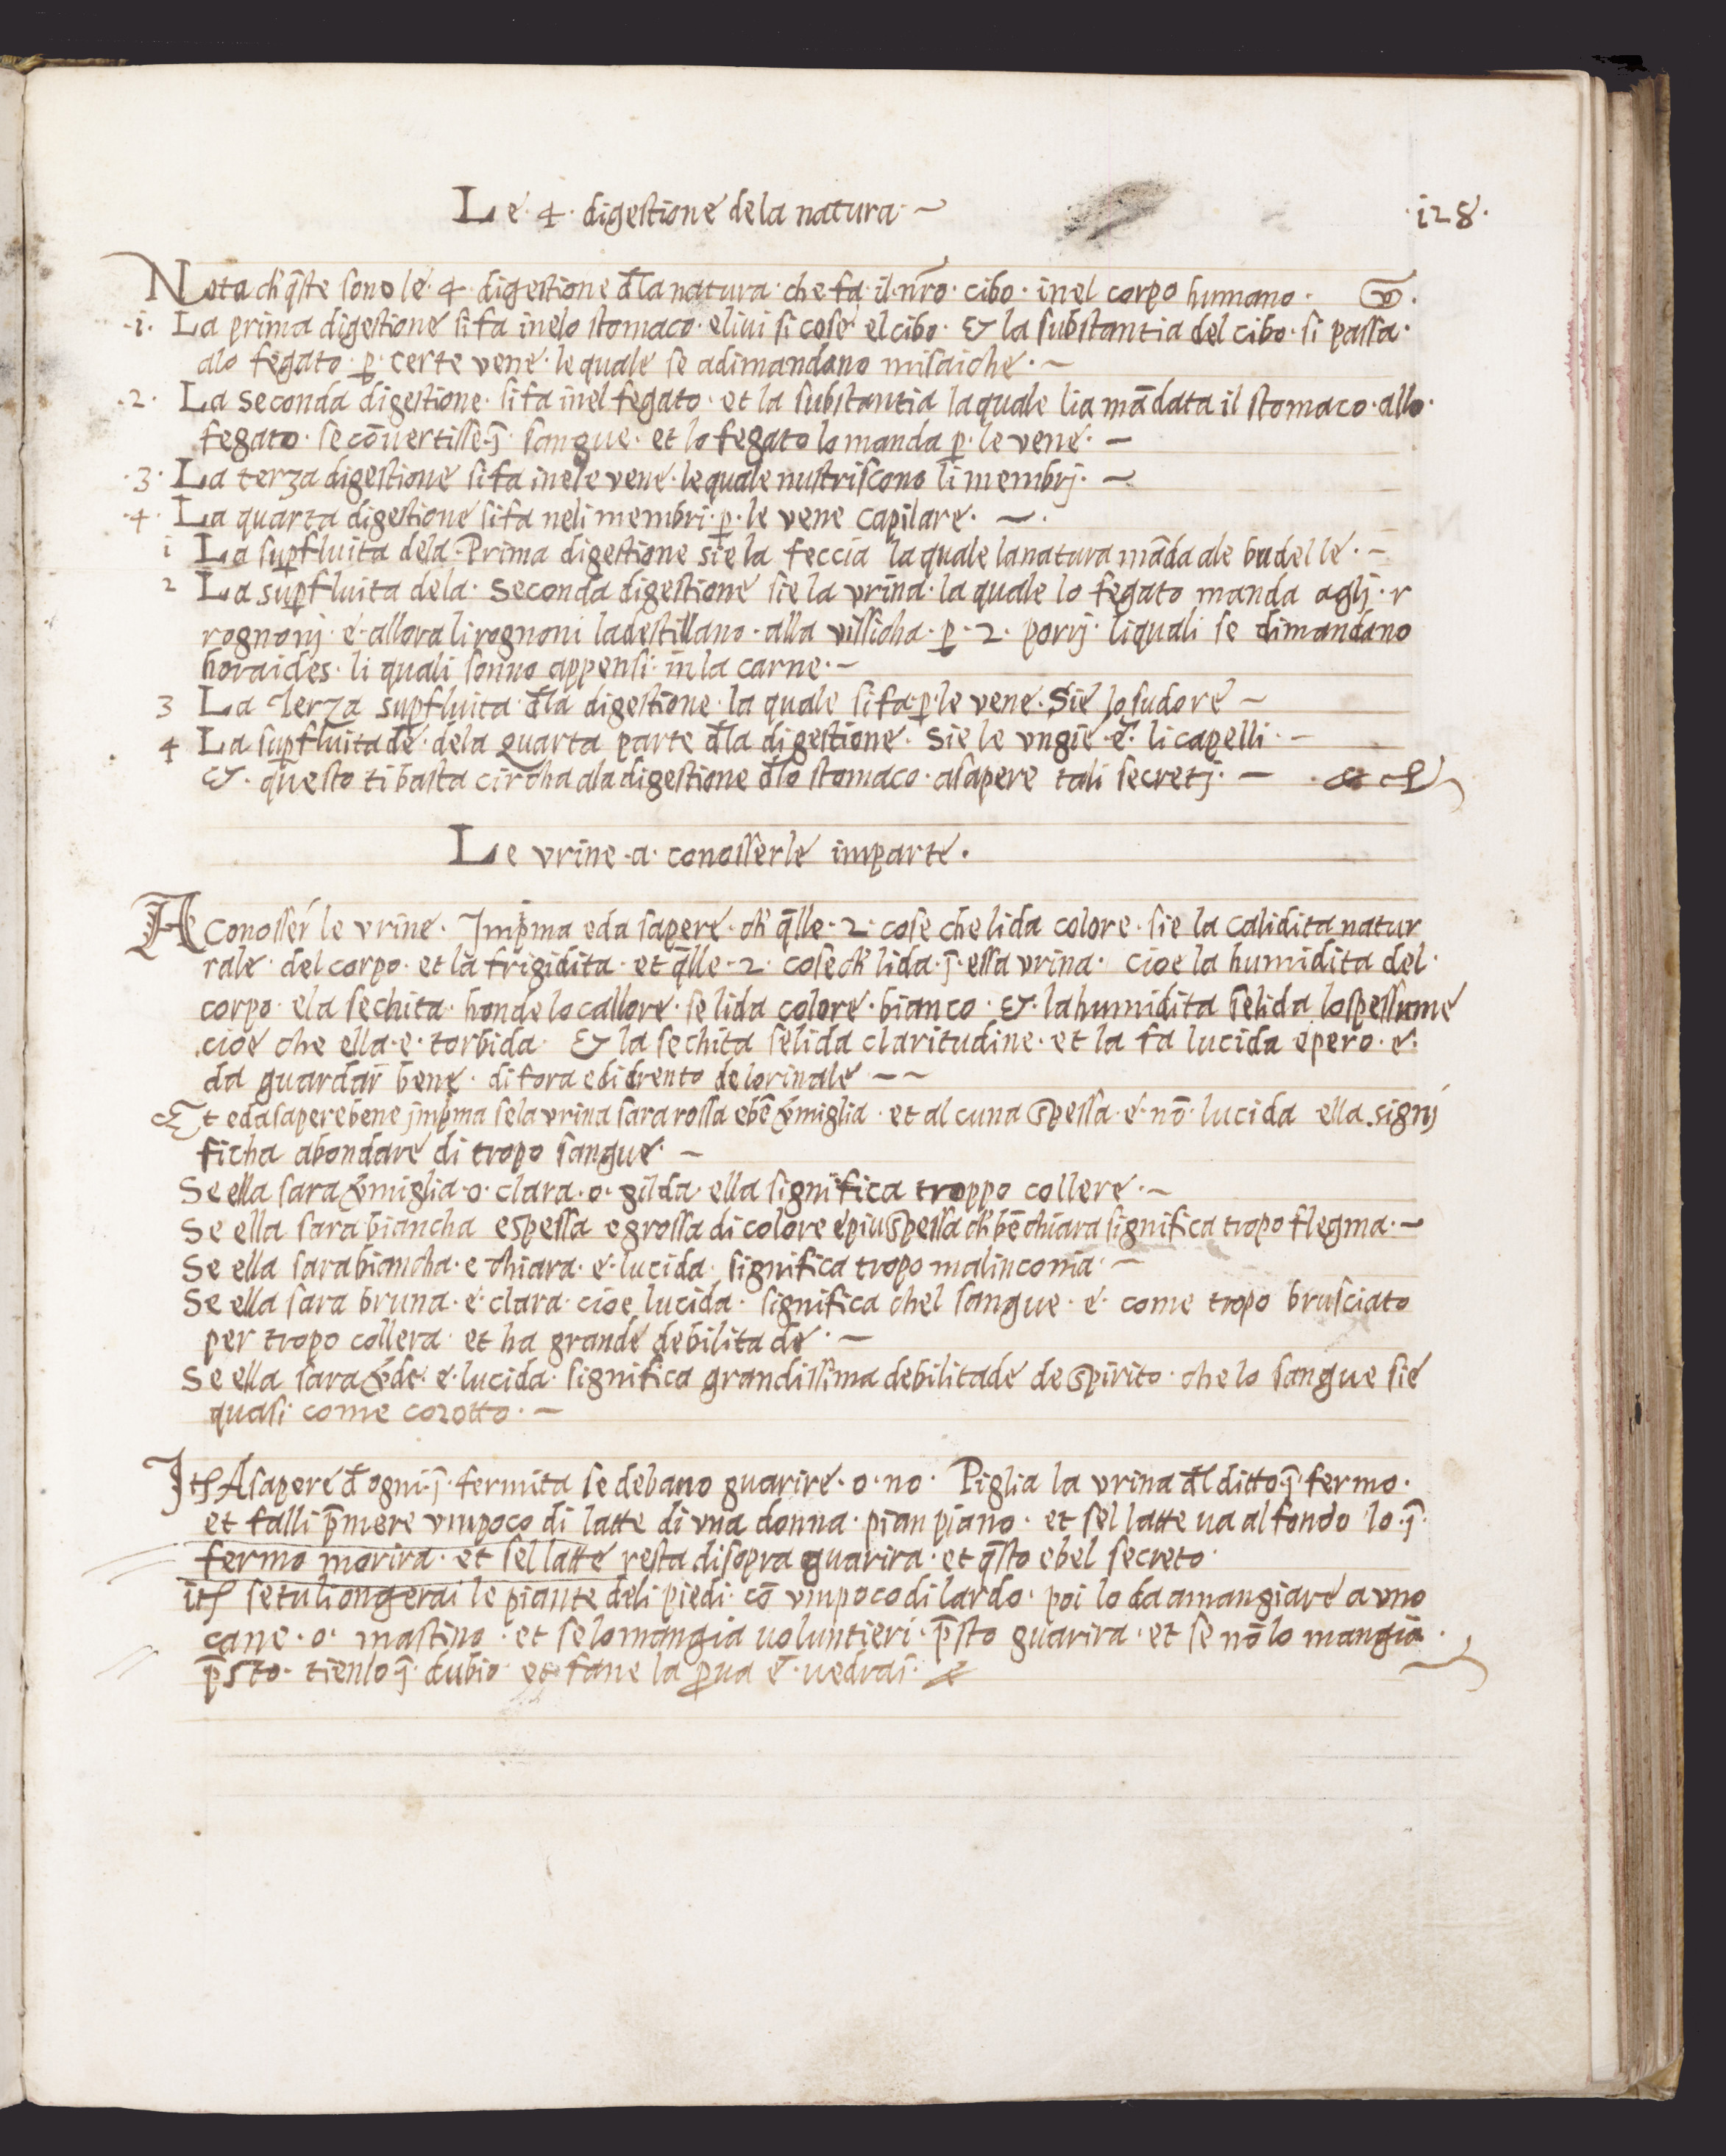 Le · 4 · digestione dela natura · ~
· i28 ·
Nota ch' q̄ste sono le · 4 · digestione đla natura · che fa · il · nr̄o · cibo · inel corpo humano ·
· i · La prima digestione si fa inelo stomaco · e livi si cose el cibo · & la substantia del cibo · si passa ·
alo fegato · ꝑ · certe vene · le quale se adimandano misaiche · ~
· 2 · La seconda digestione · si fa inel fegato · et la substantia la quale lia mādata il stomaco · allo ·
fegato · se cōvertisse · j̄ · sangue · et lo fegato lo manda ꝑ · le vene · ~
· 3 · La terza digestione si fa inele vene · le quale nustriscono li membrj · ~
· 4 · La quarta digestione si fa neli membri · ꝑ · le vene capilare · ~ ·
i La suꝑfluita dela · Prima digestione sie la feccia la quale la natura māda ale budelle · ~
2 La suꝑfluita dela · seconda digestione sie la vrina · la quale lo fegato manda aglj · r
rognonj · e · allora li rognoni la destillano · alla vissicha · ꝑ · 2 · porrj · li quali se dimandano
horaides · li quali sonno appensi · in la carne · ~
3 La Terza suꝑfluita đla digestione · la quale si fa · ꝑ · le vene · Sie lo sudore ~
4 La suꝑfluitade · dela Quarta parte đla digestione · sie le vngie · e · li capelli · ~
& · questo ti basta circha ala digestione đlo stomaco · a sapere tali secretj · ~
Le vrine · a · conosserle imparte ·
A Conosser le vrine · Imp̄ma e da sapere · ch' q̄lle · 2 · cose che li da colore · sie la calidita natur
rale · del corpo · et la frigidita · et q̄lle · 2 · cose ch' li da · j̄ · essa vrina · cioe la humidita del ·
corpo · e la sechita · honde lo callore · se li da colore · bianco · & · la humidita se li da lo spessume
cioe che ella · e · torbida · & la sechita se li da claritudine · et la fa lucida e pero · e ·
da guardar bene · di fora e di drento de lorinale ~ ~
Et e da sapere bene jmp̄ma se la vrina sara rossa e bē v̄miglia · et alcuna spessa · e · nō · lucida ella · signj
ficha abondare di tropo sangue · ~
Se ella sara v̄miglia · o · clara · o · gilda · ella significa troppo collere · ~
Se ella sara biancha e spessa e grossa di colore e piu spessa ch' bē chiara significa tropo flegma · ~
Se ella sara biancha · e chiara · e · lucida · significa tropo malinconia · ~
Se ella sara bruna · e · clara · cioe lucida · significa chel sangue · e · come tropo brusciato
per tropo collera · et ha grande debilitade · ~
Se ella sara v̄de · e · lucida · significa grandissima debilitade de spirito · che lo sangue sie
quasi come corotto · ~
Itē A sapere đ ogni · j̄ · fermita se debano guarire · o · no · Piglia la vrina đl ditto j̄ · fermo ·
et falli p̄mere vmpoco di latte di vna donna · pian piano · et sel latte ua al fondo lo · j̄ ·
fermo morira · et sel latte resta di sopra guarira · et q̄sto e bel secreto ·
itē se tu li ongerai le piante deli piedi · cō vmpoco di lardo · poi lo da a mangiare a vno
cane · o · mastino · et se lo mangia uoluntieri · p̄sto guarira · et se nō lo mangia ·
p̄sto · tienlo j̄ · dubio et fane la ꝓua e · uedrai ·